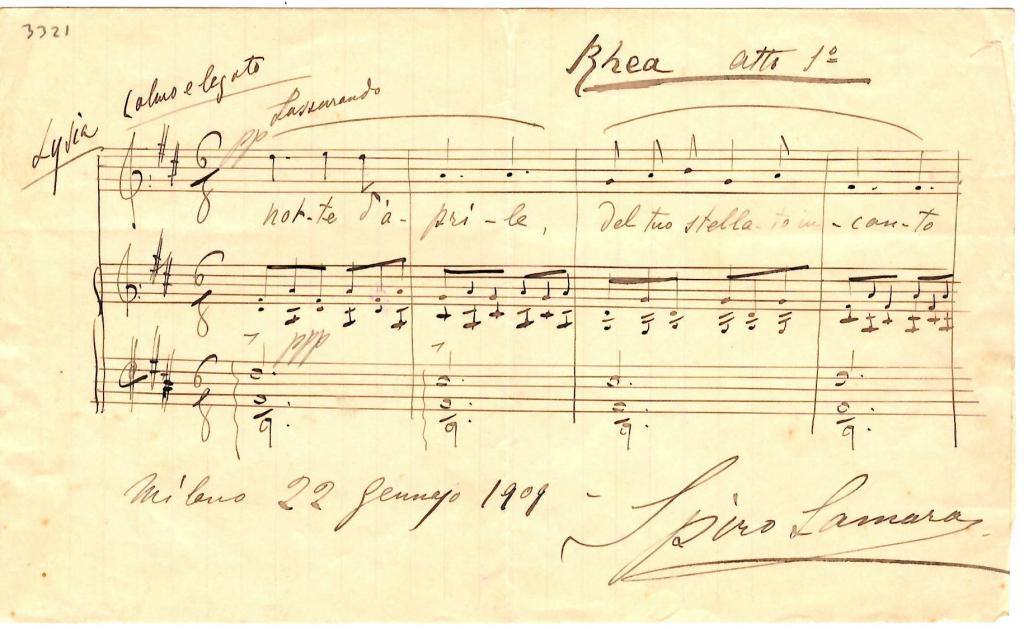 3321
Rhea atto 1º
Calmo e legato
Lysia
pp Sussurando
6
8
not-te d'a-pri-le, del tuo stella-to in-can-to
6
8
ppp
6
8
Milano 22 Gennajo 1909 -
Spiro Samara